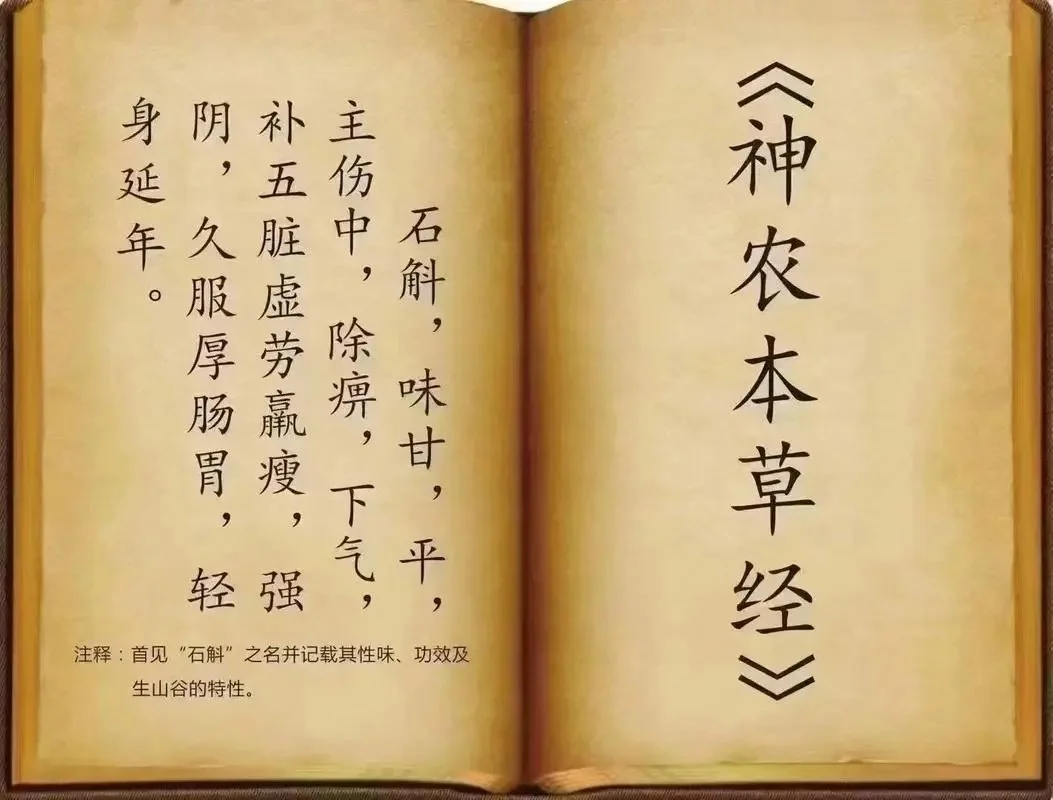 《神农本草经》
石斛，味甘，平，
主伤中，除痹，下气，
补五脏虚劳羸瘦，强
阴，久服厚肠胃，轻
身延年。
注释：首见“石斛”之名并记载其性味、功效及
生山谷的特性。